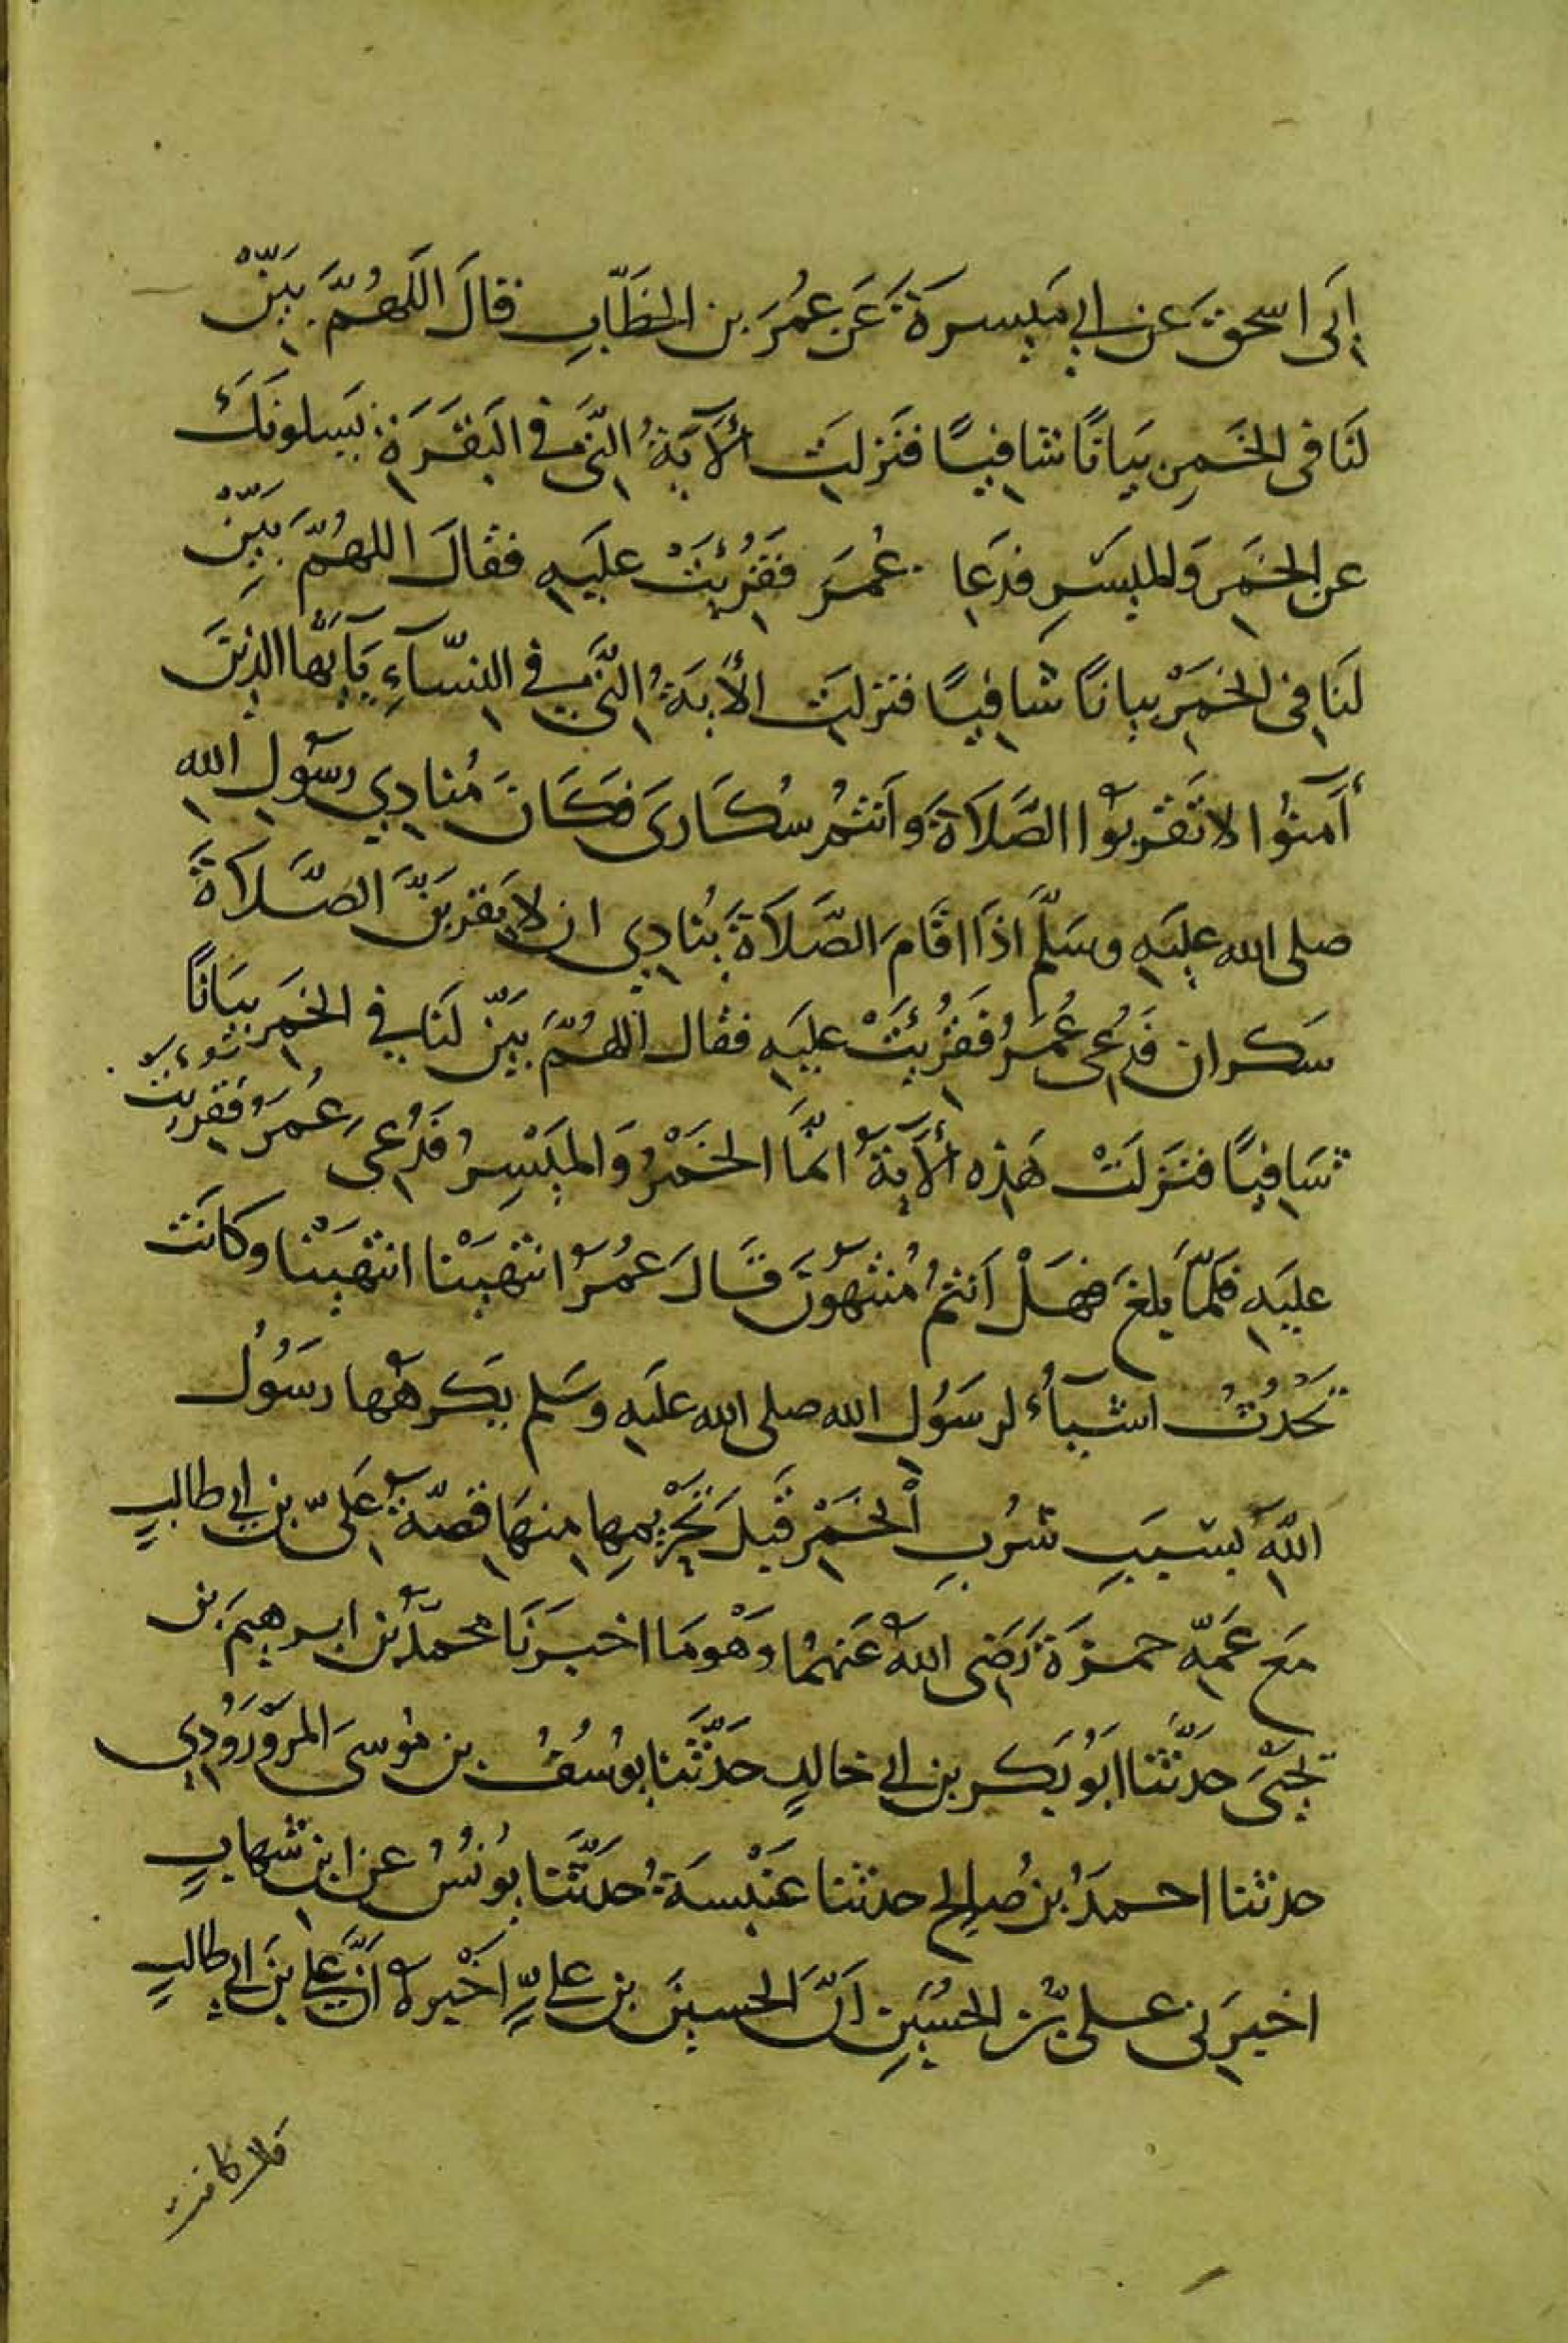 إبى اسحق عن ابي ميسرة عن عمر بن الخطاب فقال اللهم بين
لنا فى الخمر بيانا شافيا فنزلت الآية التي في البقرة يسلونك
عن الخمر والميسر فدعا عمر فقرئت عليه فقال اللهم بين
لنا فى الخمر بيانا شافيا فنزلت الأية التي في النسآء يآيها الذين
آمنوا لا تقربوا الصلاة وانتم سكارى فكان منادي رسول الله
صلى الله عليه وسلم اذا اقام الصلاة ينادي ان لا يقربن الصلاة
سكران فدعى عمر فقرئت عليه فقال اللهم بين لنا في الخمر بيانا
شافيا فنزلت هذه الآية انما الخمر والميسر فدعى عمر فقرئت
عليه فلما بلغ فهل انتم منتهون قال عمر انتهينا انتهينا وكانت
تحدث اشيآء لرسول الله صلى الله عليه وسلم يكرهها رسول
الله بسبب شرب الخمر قبل تحريمها منها قصة على بن ابي طالب
مع عمه حمزة رضى الله عنهما وهو ما اخبرنا محمد بن ابرهيم بن
يحيى حدثنا ابو بكر بن ابي خالد حدثنا يوسف بن موسى المروروذي
حدثنا احمد بن صالح حدثنا عنبسة حدثنا يونس عن ابن شهاب
اخبرنى على بن الحسين ان الحسين بن علي اخبره ان علي بن ابي طالب
قال كانت